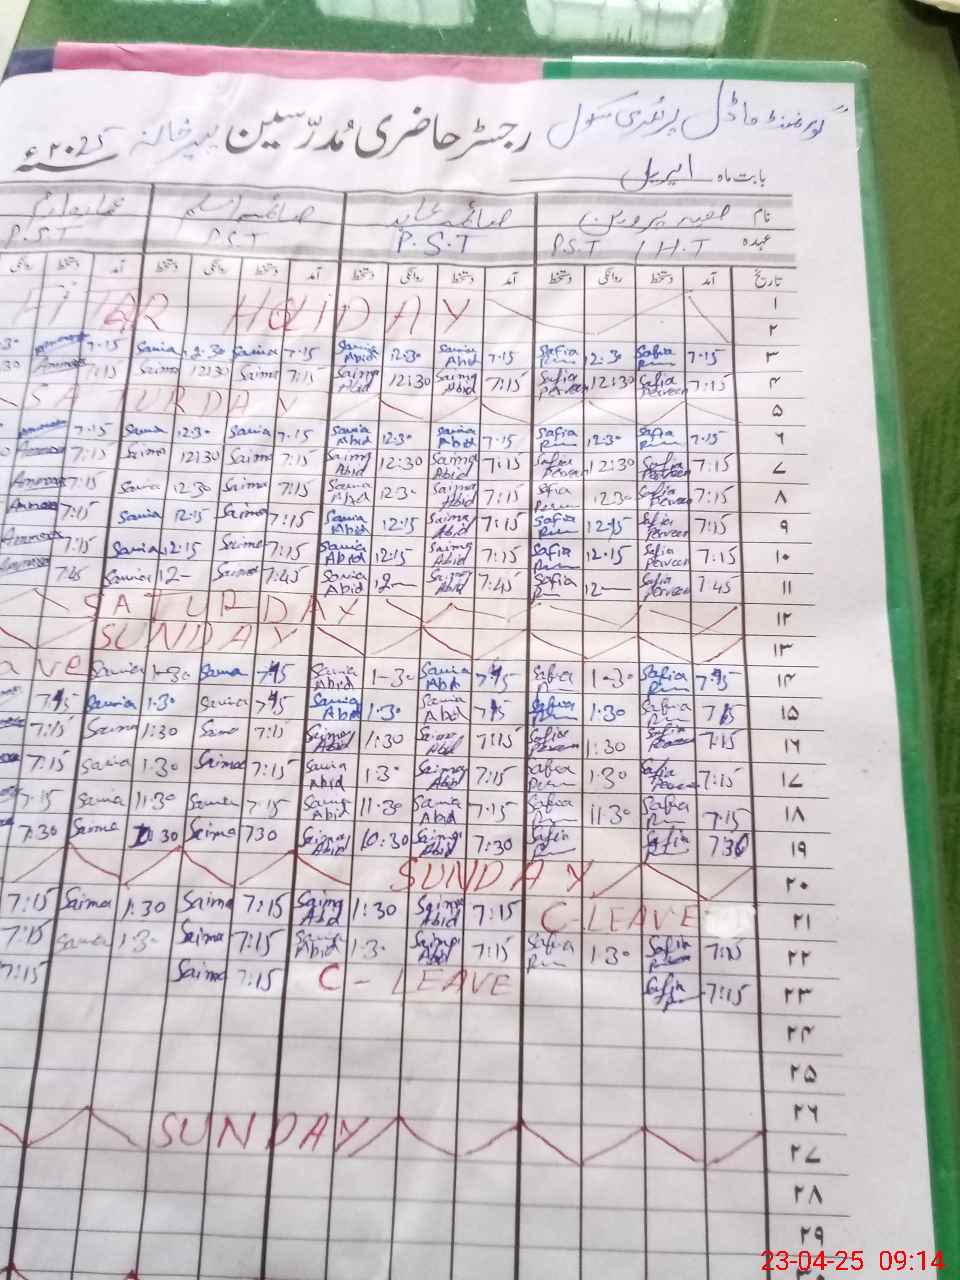 گورنمنٹ ماڈل پرائمری سکول رجسٹر حاضری مُدرّسین پیرخانہ ۲۰25ء
بابت ماہ اپریل
نام صفیہ پروین صائمہ عابد صائمہ اسلم
عہدہ P.S.T / H.T P.S.T P.S.T P.S.T
تاریخ آمد دستخط روانگی دستخط آمد دستخط روانگی دستخط آمد دستخط روانگی دستخط آمد دستخط روانگی
۱ HOLIDAY
۲
۳ 7.15 Safia 12.30 Safia 7.15 Saima Abid 12.30 Saima Abid 7.15 Saima 12.30 Saima 7.15
۴ 7:15 Safia Perveen 12:30 Safia Perveen 7:15 Saima Abid 12:30 Saima Abid 7:15 Saima 12:30 Saima 7:15
۵ SATURDAY
۶ 7.15 Safia 12.30 Safia 7.15 Saima Abid 12.30 Saima Abid 7.15 Saima 12.30 Saima 7.15
۷ 7:15 Safia Perveen 12:30 Safia Perveen 7:15 Saima Abid 12:30 Saima Abid 7:15 Saima 12:30 Saima 7:15
۸ 7:15 Safia Perveen 12.30 Safia 7:15 Saima Abid 12.30 Saima Abid 7:15 Saima 12.30 Saima 7:15
۹ 7:15 Safia Perveen 12.15 Safia 7:15 Saima Abid 12.15 Saima Abid 7:15 Saima 12.15 Saima 7:15
۱۰ 7:15 Safia Perveen 12.15 Safia 7:15 Saima Abid 12.15 Saima Abid 7:15 Saima 12.15 Saima 7:15
۱۱ 7:45 Safia Perveen 12— Safia 7:45 Saima Abid 12— Saima Abid 7:45 Saima 12— Saima 7:45
۱۲ SATURDAY
۱۳ SUNDAY
۱۴ Safia 1-30 Safia Saima Abid 1-30 Saima Abid Saima 1-30 Saima
۱۵ Safia 1:30 Safia Saima Abid 1.30 Saima Abid Saima 1.30 Saima
۱۶ 7:15 Safia Perveen 1:30 Safia Perveen 7:15 Saima Abid 1:30 Saima Abid 7:15 Saima 1:30 Saima 7:15
۱۷ 7:15 Safia Perveen 1.30 Safia 7:15 Saima Abid 1.30 Saima Abid 7:15 Saima 1.30 Saima 7:15
۱۸ 7.15 Safia 11.30 Safia 7.15 Saima Abid 11.30 Saima Abid 7.15 Saima 11.30 Saima 7.15
۱۹ 7:30 Safia Safia 7:30 Saima Abid 10:30 Saima Abid 730 Saima 10:30 Saima 7:30
۲۰ SUNDAY
۲۱ C-LEAVE 7:15 Saima Abid 1:30 Saima Abid 7:15 Saima 1:30 Saima 7:15
۲۲ 7:15 Safia 1.30 Safia 7:15 Saima Abid 1.30 Saima Abid 7:15 Saima 1.30 Saima 7:15
۲۳ 7:15 Safia C-LEAVE 7:15 Saima 7:15
۲۴
۲۵
۲۶
۲۷ SUNDAY
۲۸
۲۹
23-04-25 09:14